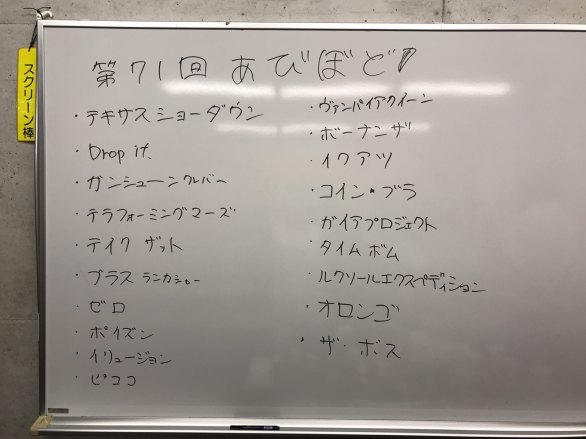 スクリーン棒
第71回 あびぼど
・テキサスショーダウン
・Drop it.
・ガンシューンクレバー
・テラフォーミングマーズ
・テイク ザット
・ブラス ランカシャー
・ゼロ
・ポイズン
・イリュージョン
・ピココ
・ヴァンパイアクイーン
・ボーナンザ
・イクアツ
・コイン・ブラ
・ガイアプロジェクト
・タイムボム
・ルクソールエクスペディション
・オロンゴ
・ザ・ボス